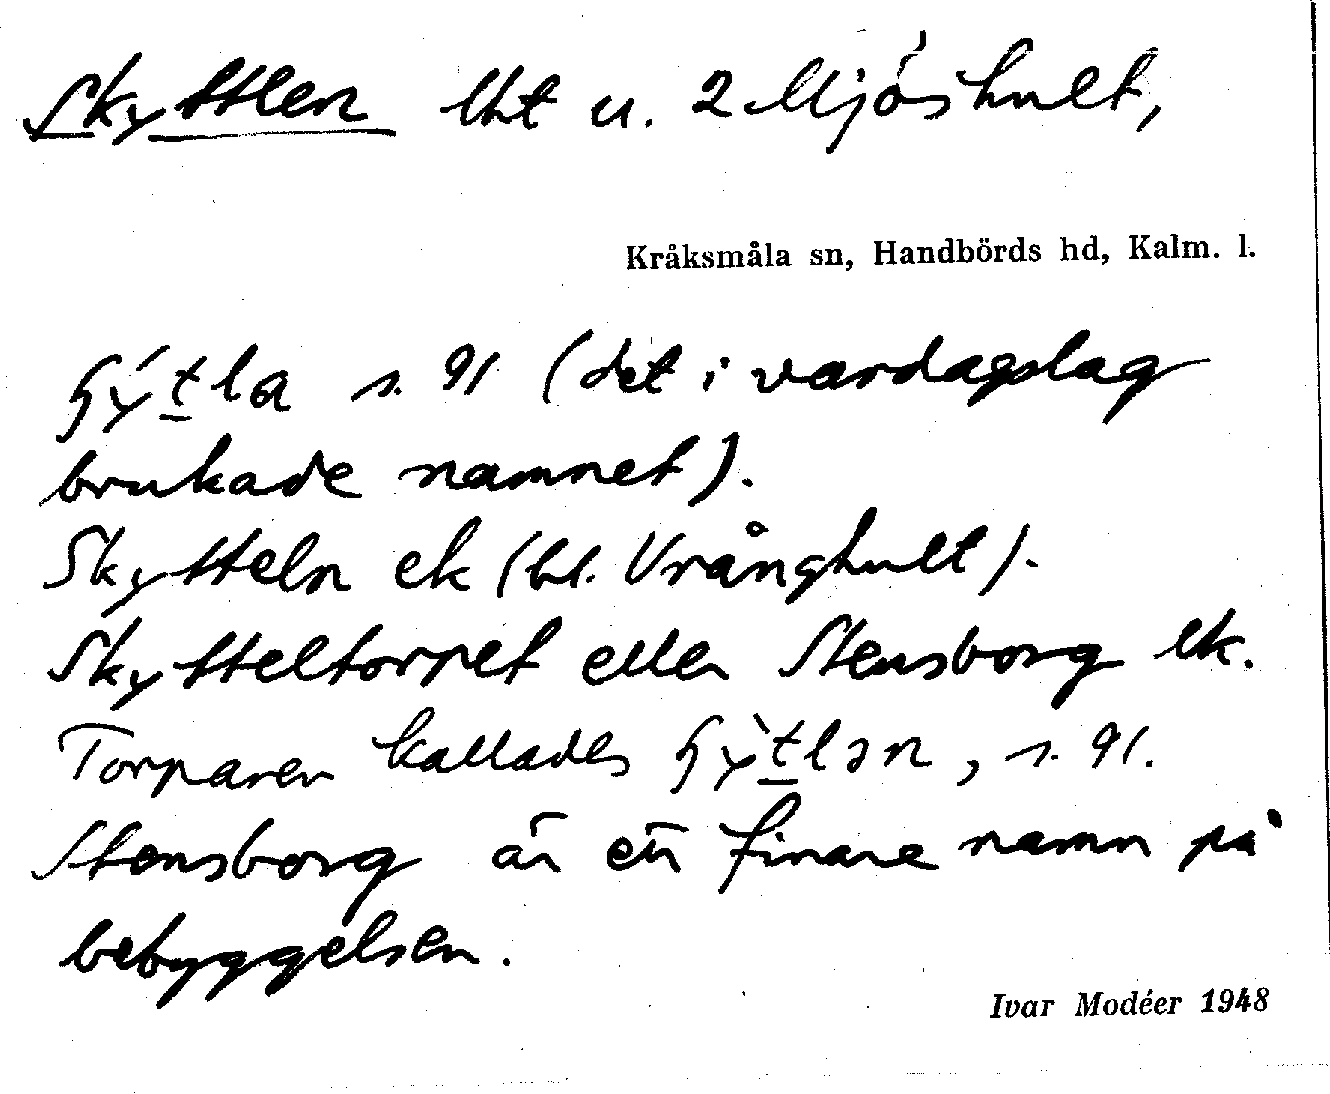 Skyttlen lht u. 2 Mjóshult,
Kråksmåla sn, Handbörds hd, Kalm. l.
ɧý̱tla s. 91 (det i vardagslag
brukade namnet).
Skytteln ek (bl. Vrånghult).
Skytteltorpet eller Stensborg ek.
Torparen kallades ɧỳṯlən, s. 91.
Stensborg är ett finare namn på
bebyggelsen.
Ivar Modéer 1948